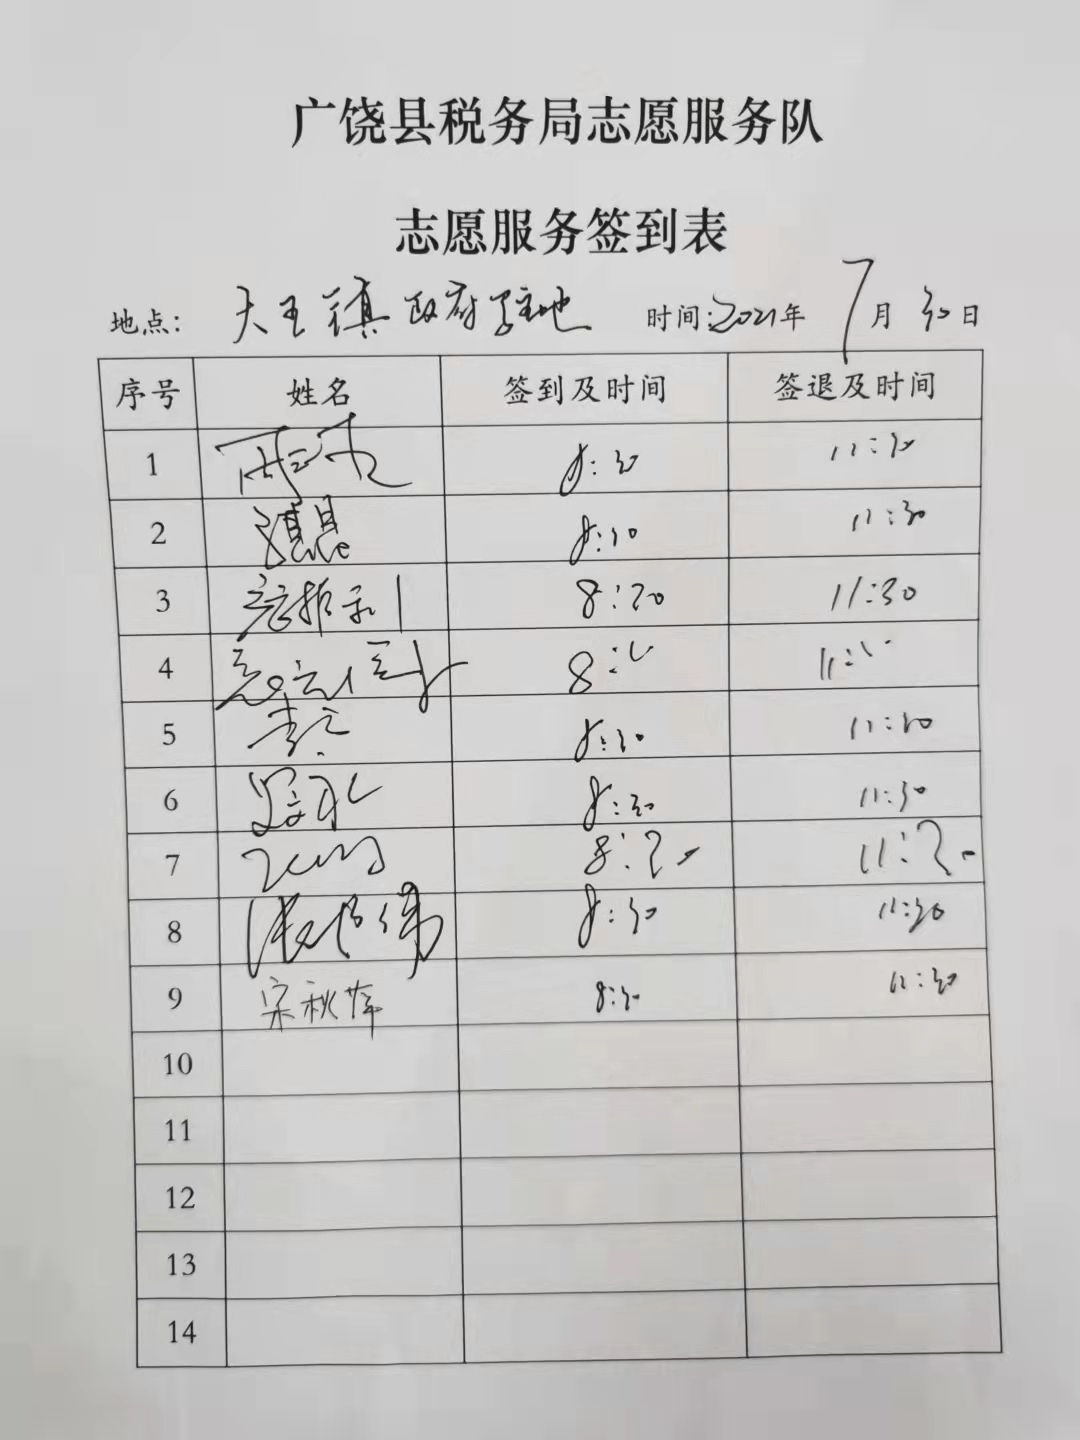 广饶县税务局志愿服务队
志愿服务签到表
地点: 大王镇政府驻地 时间:2021年7月30日
序号 姓名 签到及时间 签退及时间
1 8:30 11:30
2 8:30 11:30
3 8:30 11:30
4 8: 11:
5 8:30 11:30
6 8:30 11:30
7 8: 11:
8 8:30 11:30
9 宋秋萍 8:30 11:30
10
11
12
13
14